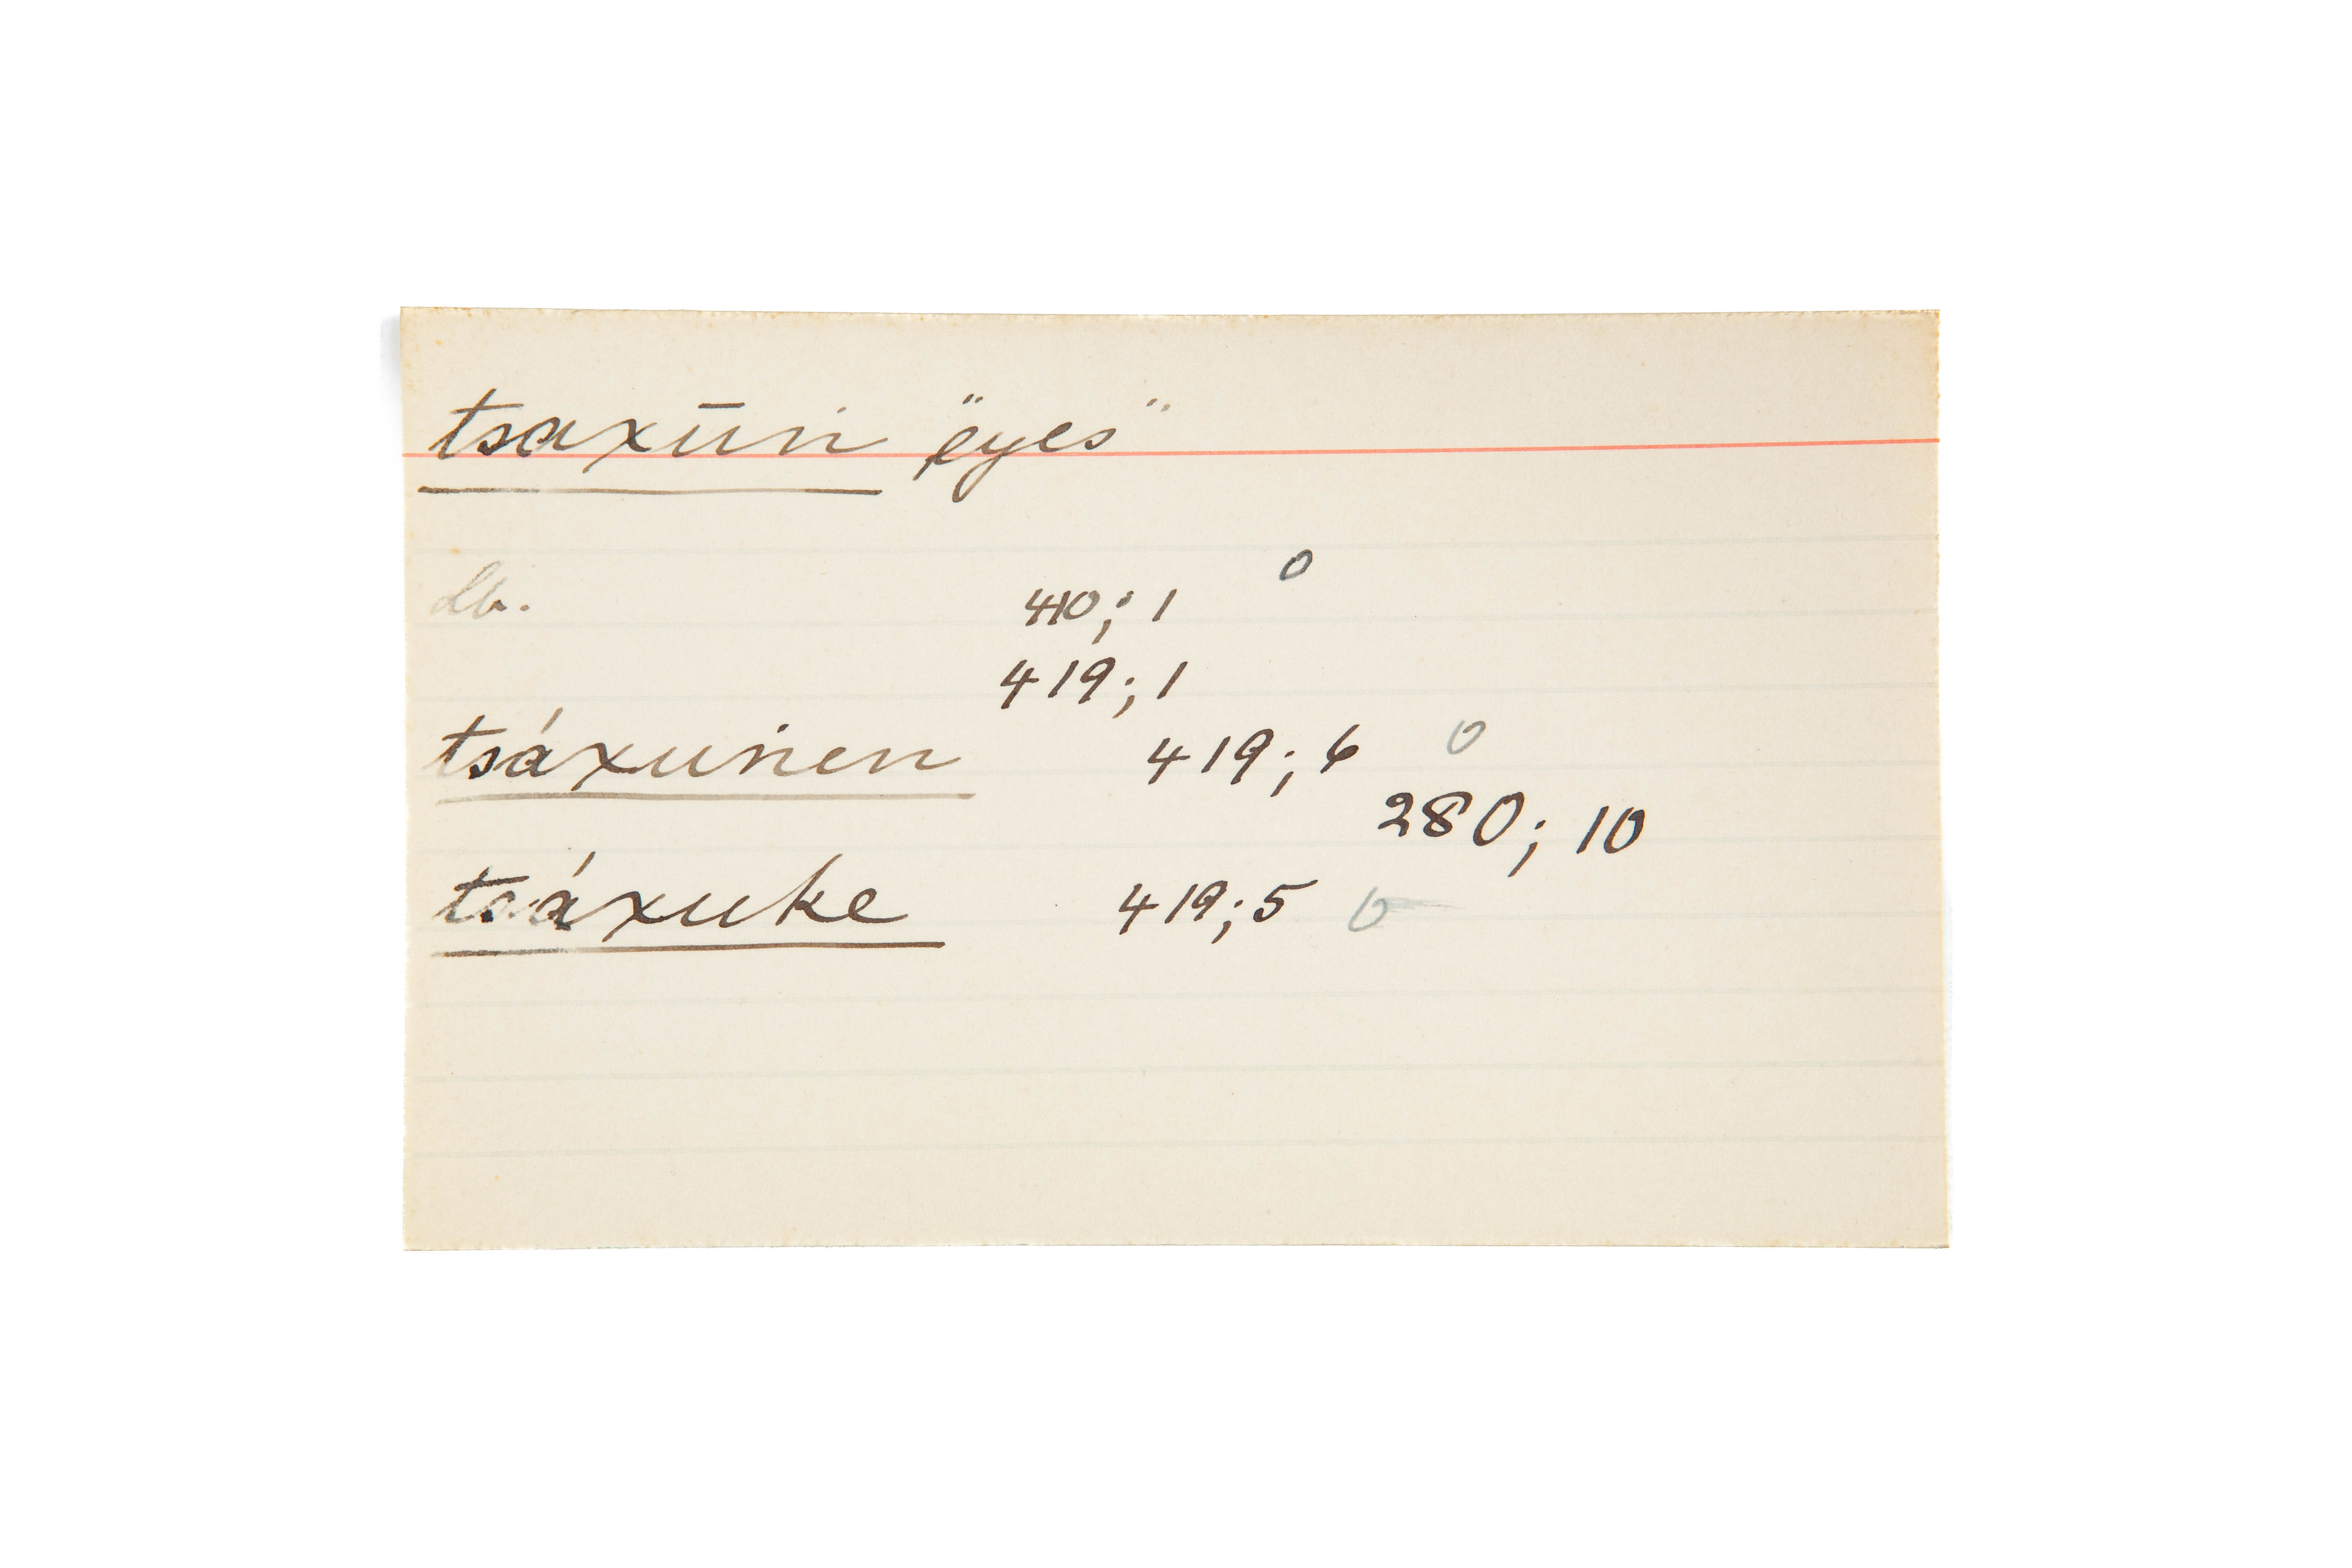 tsaxūn "eyes"
Lb. 410; 1 0
419; 1
tsáxunen 419; 6 0
280; 10
tsáxuke 419; 5 0